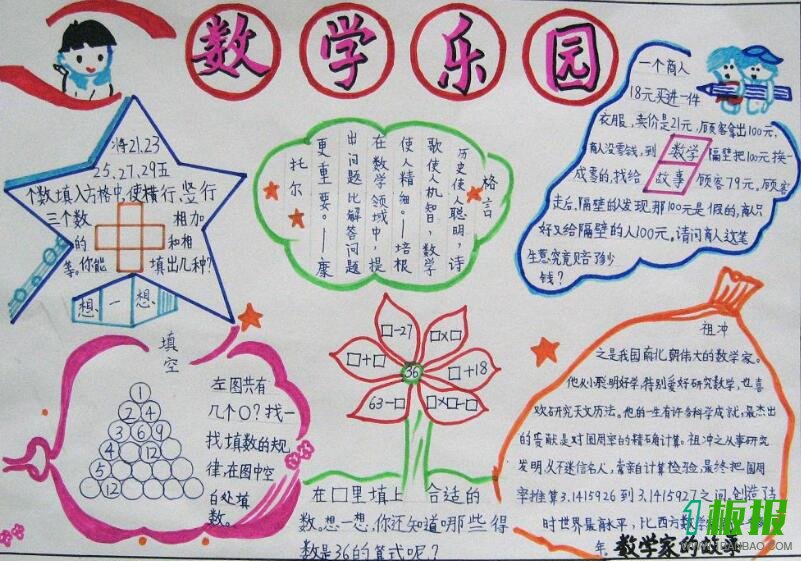 数学乐园
将21.23
25.27.29五
个数填入方格中,使横行、竖行
三个数 相加
的 和相
等。你能 填出几种?
想一想
格言
历史使人聪明,诗
歌使人机智,数学
使人精细。——培根
在数学领域中,提
出问题比解答问题
更重要。——康
托尔
一个商人
18元买进一件
衣服,卖价是21元,顾客拿出100元,
商人没零钱,到 数学 隔壁把100元换一
成零的,找给 故事 顾客79元,顾客
走后,隔壁的发现,那100元是假的,商人只
好又给隔壁的人100元。请问商人这笔
生意究竟赔了多少
钱?
填空
1
2 4
3 6 9
4 12
5
12
左图共有
几个O?找一
找填数的规
律,在图中空
白处填
数。
□-27
□×□
□+□
36
□+18
63-□
□×□-□
在□里填上 合适的
数。想一想,你还知道哪些得
数是36的算式呢?
祖冲
之是我国南北朝伟大的数学家。
他从小聪明好学,特别爱好研究数学,也喜
欢研究天文历法。他的一生有许多科学成就,最杰出
的贡献是对圆周率的精确计算。祖冲之从事研究
发明,从不迷信名人,常亲自计算检验,最终把圆周
率推算3.1415926到3.1415927之间,创造了
时世界最高水平,比西方数学
年。
数学家的故事
板报